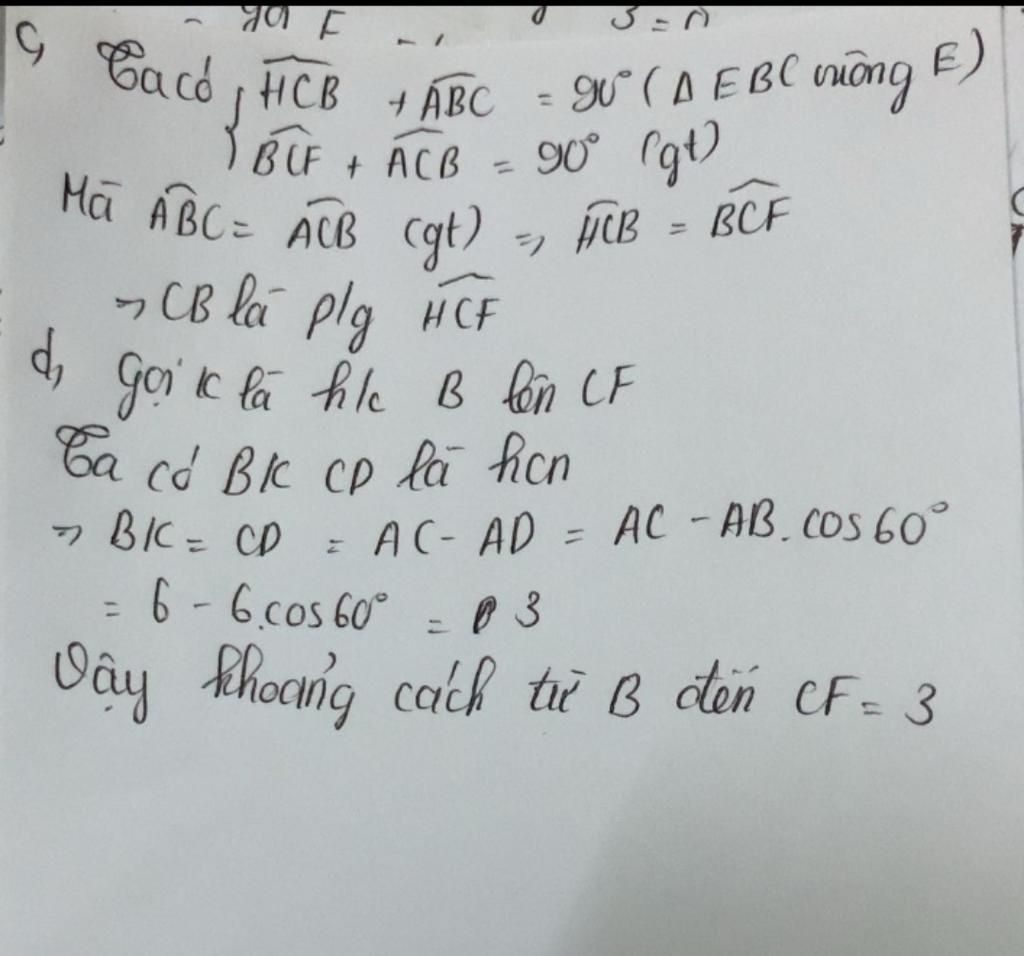 c,
Ta có { HCB + ABC = 90° (Δ EBC vuông E)
BCF + ACB = 90° (gt)
Mà ABC = ACB (gt) => HCB = BCF
=> CB là p/g HCF
d,
Gọi K là h/c B lên CF
Ta có BKCD là hcn
=> BK = CD = AC - AD = AC - AB.cos60°
= 6 - 6.cos60° = 3
Vậy khoảng cách từ B đến CF = 3